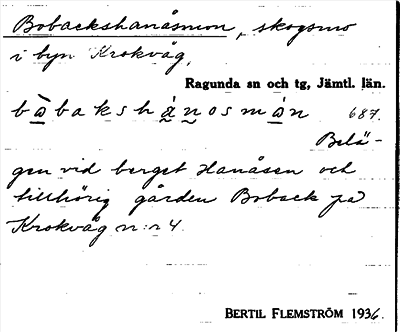 Bobackshanåsmon, skogsmo
i byn Krokvåg,
Ragunda sn och tg, Jämtl. län.
bòbakshànosmòn 687.
Belä-
gen vid berget Hanåsen och
tillhörig gården Boback på
Krokvåg n:r 4.
BERTIL FLEMSTRÖM 1936.